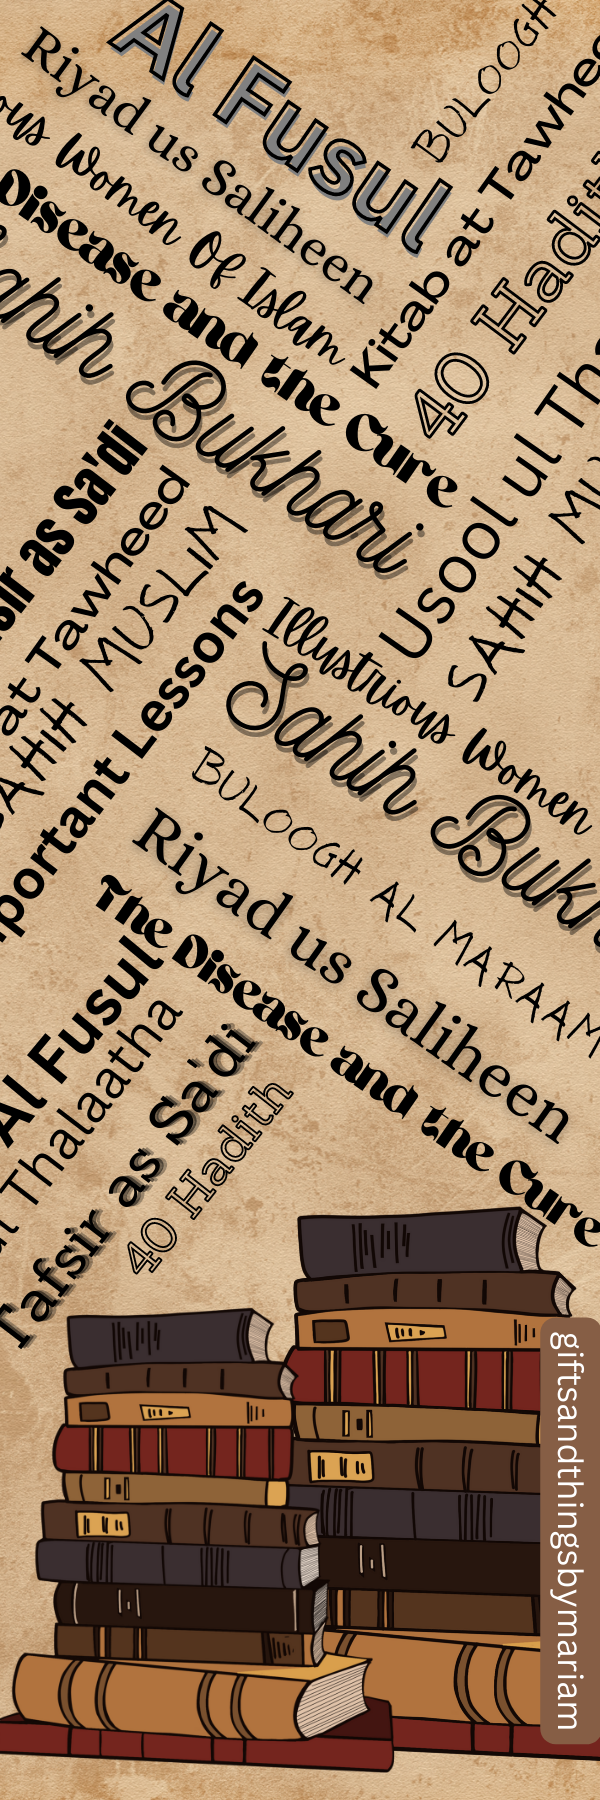 Al Fusul
Riyad us Saliheen
Women Of Islam
Disease and the Cure
Bukhari
BULOOGH
Kitab at Tawheed
40 Hadith
Usool ul
SAHIH
as Sa'di
at Tawheed
SAHIH MUSLIM
Lessons
Illustrious Women
Sahih
BULOOGH AL MARAAM
Riyad us Saliheen
The Disease and the Cure
Al Fusul
Thalaatha
Tafsir as Sa'di
40 Hadith
giftsandthingsbymariam